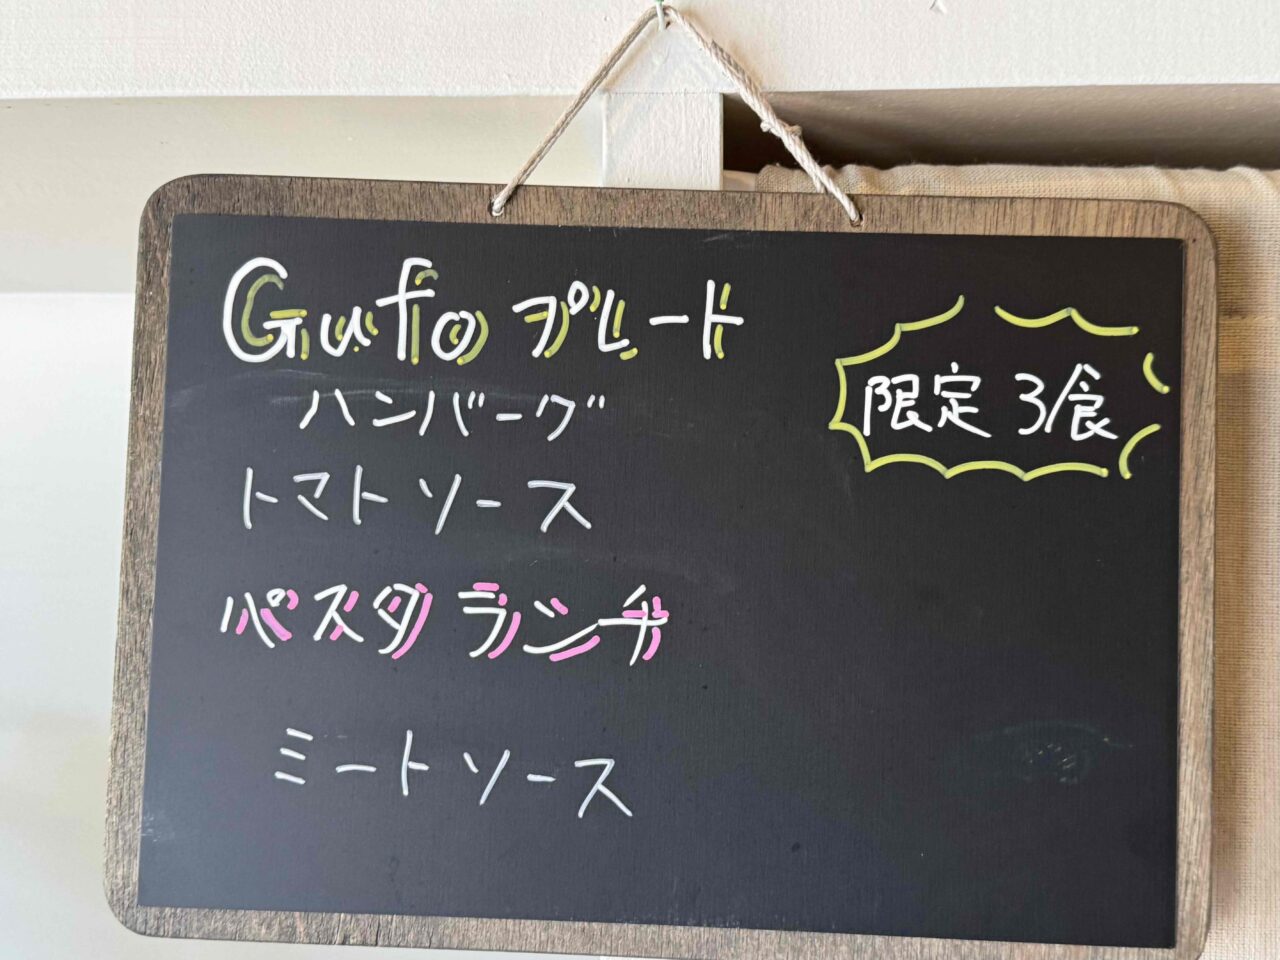 Gufo プレート
限定 3食
ハンバーグ
トマトソース
パスタランチ
ミートソース